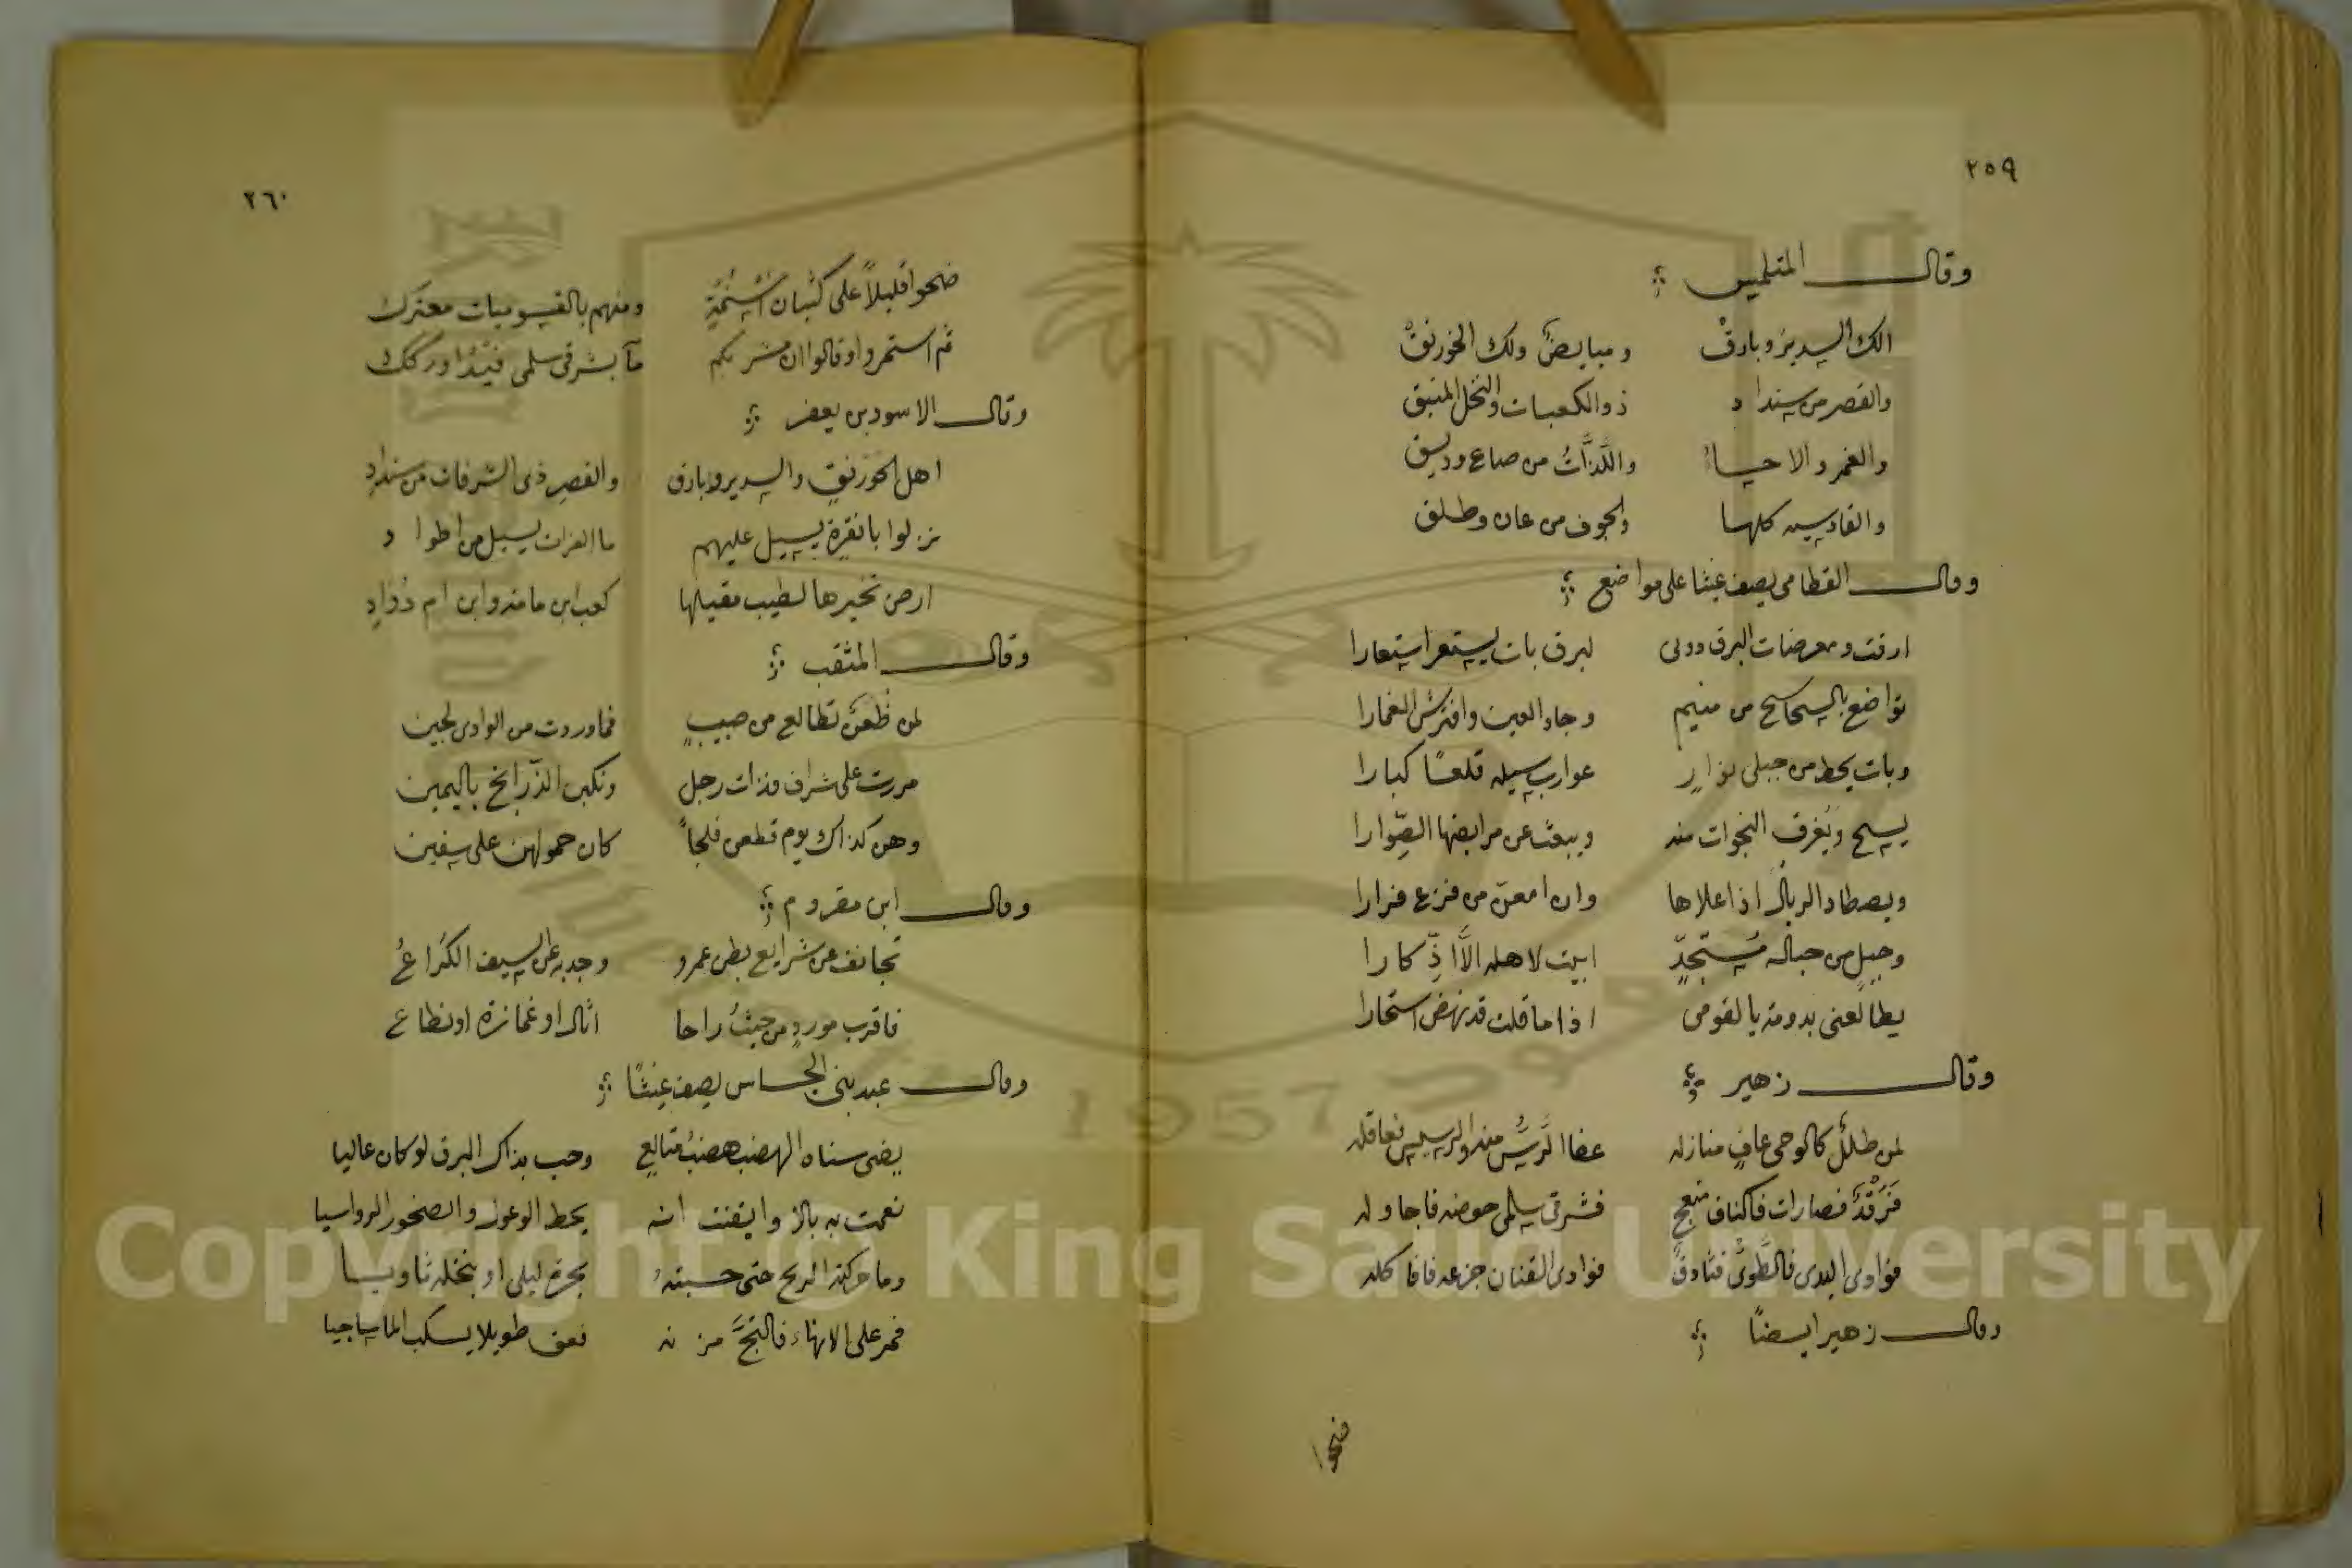 ٢٥٩
وقال المتلمس
الك السدير وبارق ومبايض ولك الخورنق
والقصر من سنداد ذو الكعبات والنخل المنبق
والغمر والاحساء واللذات من صاع وديسق
والقادسيه كلها والجوف من عان وطلق
وقال القطامى يصف غيثا على مواضع
ارقت ومعرضات البرق دونى لبرق بات يستعر استعارا
تواضع بالسحاسح من منيم وجاد العين وافترش الغمارا
وبات يحط من جبلى نزار غوارب سيله قلعًا كبارا
يسيح ويُغرق النجوات منه ويبعث عن مرابضها الصِّوارا
ويصطاد الربال اذا علاها وان امعنّ من فزع فرارا
وحبلٍ من حباله مُستَجِدٍّ ابيت لاهله الاَّ اذِّكارا
يطالعنى بدومة يا لقومى اذا ما قلت قد نهض استحارا
وقال زهير
لمن طللٌ كالوحى عافٍ منازله عفا الرَّسُّ منه والرسيس فعاقله
فَرَقْدٌ فصارات فاكناف منعج فشرقى سلمى حوضه فاجاوله
فوادى البدى فالطَّوىُّ فثادقٌ فوادى القنان جزعه فافاكله
وقال زهير ايضًا
ضحوا
٢٦٠
ضحوا قليلاً على كثبان اُسْنُمَةٍ ومنهم بالقسوميات معترك
ثم استمروا وقالوا ان مشربكم مآ بشرقى سلمى فَيْدُ او رككُ
وقال الاسود بن يعفر
اهل الخورنق والسدير وبارق والقصرِ ذى الشرفات من سندادِ
نزلوا بانقرة يسيل عليهم ما الفرات يسيل من اطواد
ارض تخيرها لطيب مقيلها كعب ابن مامة وابن ام دُوَادِ
وقال المثقب
لمن ظُعُنٌ تطالع من صبيبٍ فما وردت من الوادى لحين
مررت على شراف فذات رجل ونكبن الذَّرانح باليمين
وهن كذاك يوم قطعن فلجاً كان حمولهن على سفين
وقال ابن مقروم
تجانف عن شرايع بطن عمرو وجد به عن السيف الكُراعُ
فاقرب مورد من حيثُ راحا اثال او غمازة او نطاع
وقال عبد بنى الحسحاس يصف غيثًا
يضى سناه الهضب هضبُ متالعٍ وحب بذاك البرق لو كان عاليا
نعمت به بالا وايقنت انه يحط الوعول والصخور الرواسيا
وما حركته الريح حتى حسبتهُ بحرة ليلى او بنخله ثاويا
فمر على الانهاء فالثجَّ مزنه فعق طويلا يسكب الما ساجيا